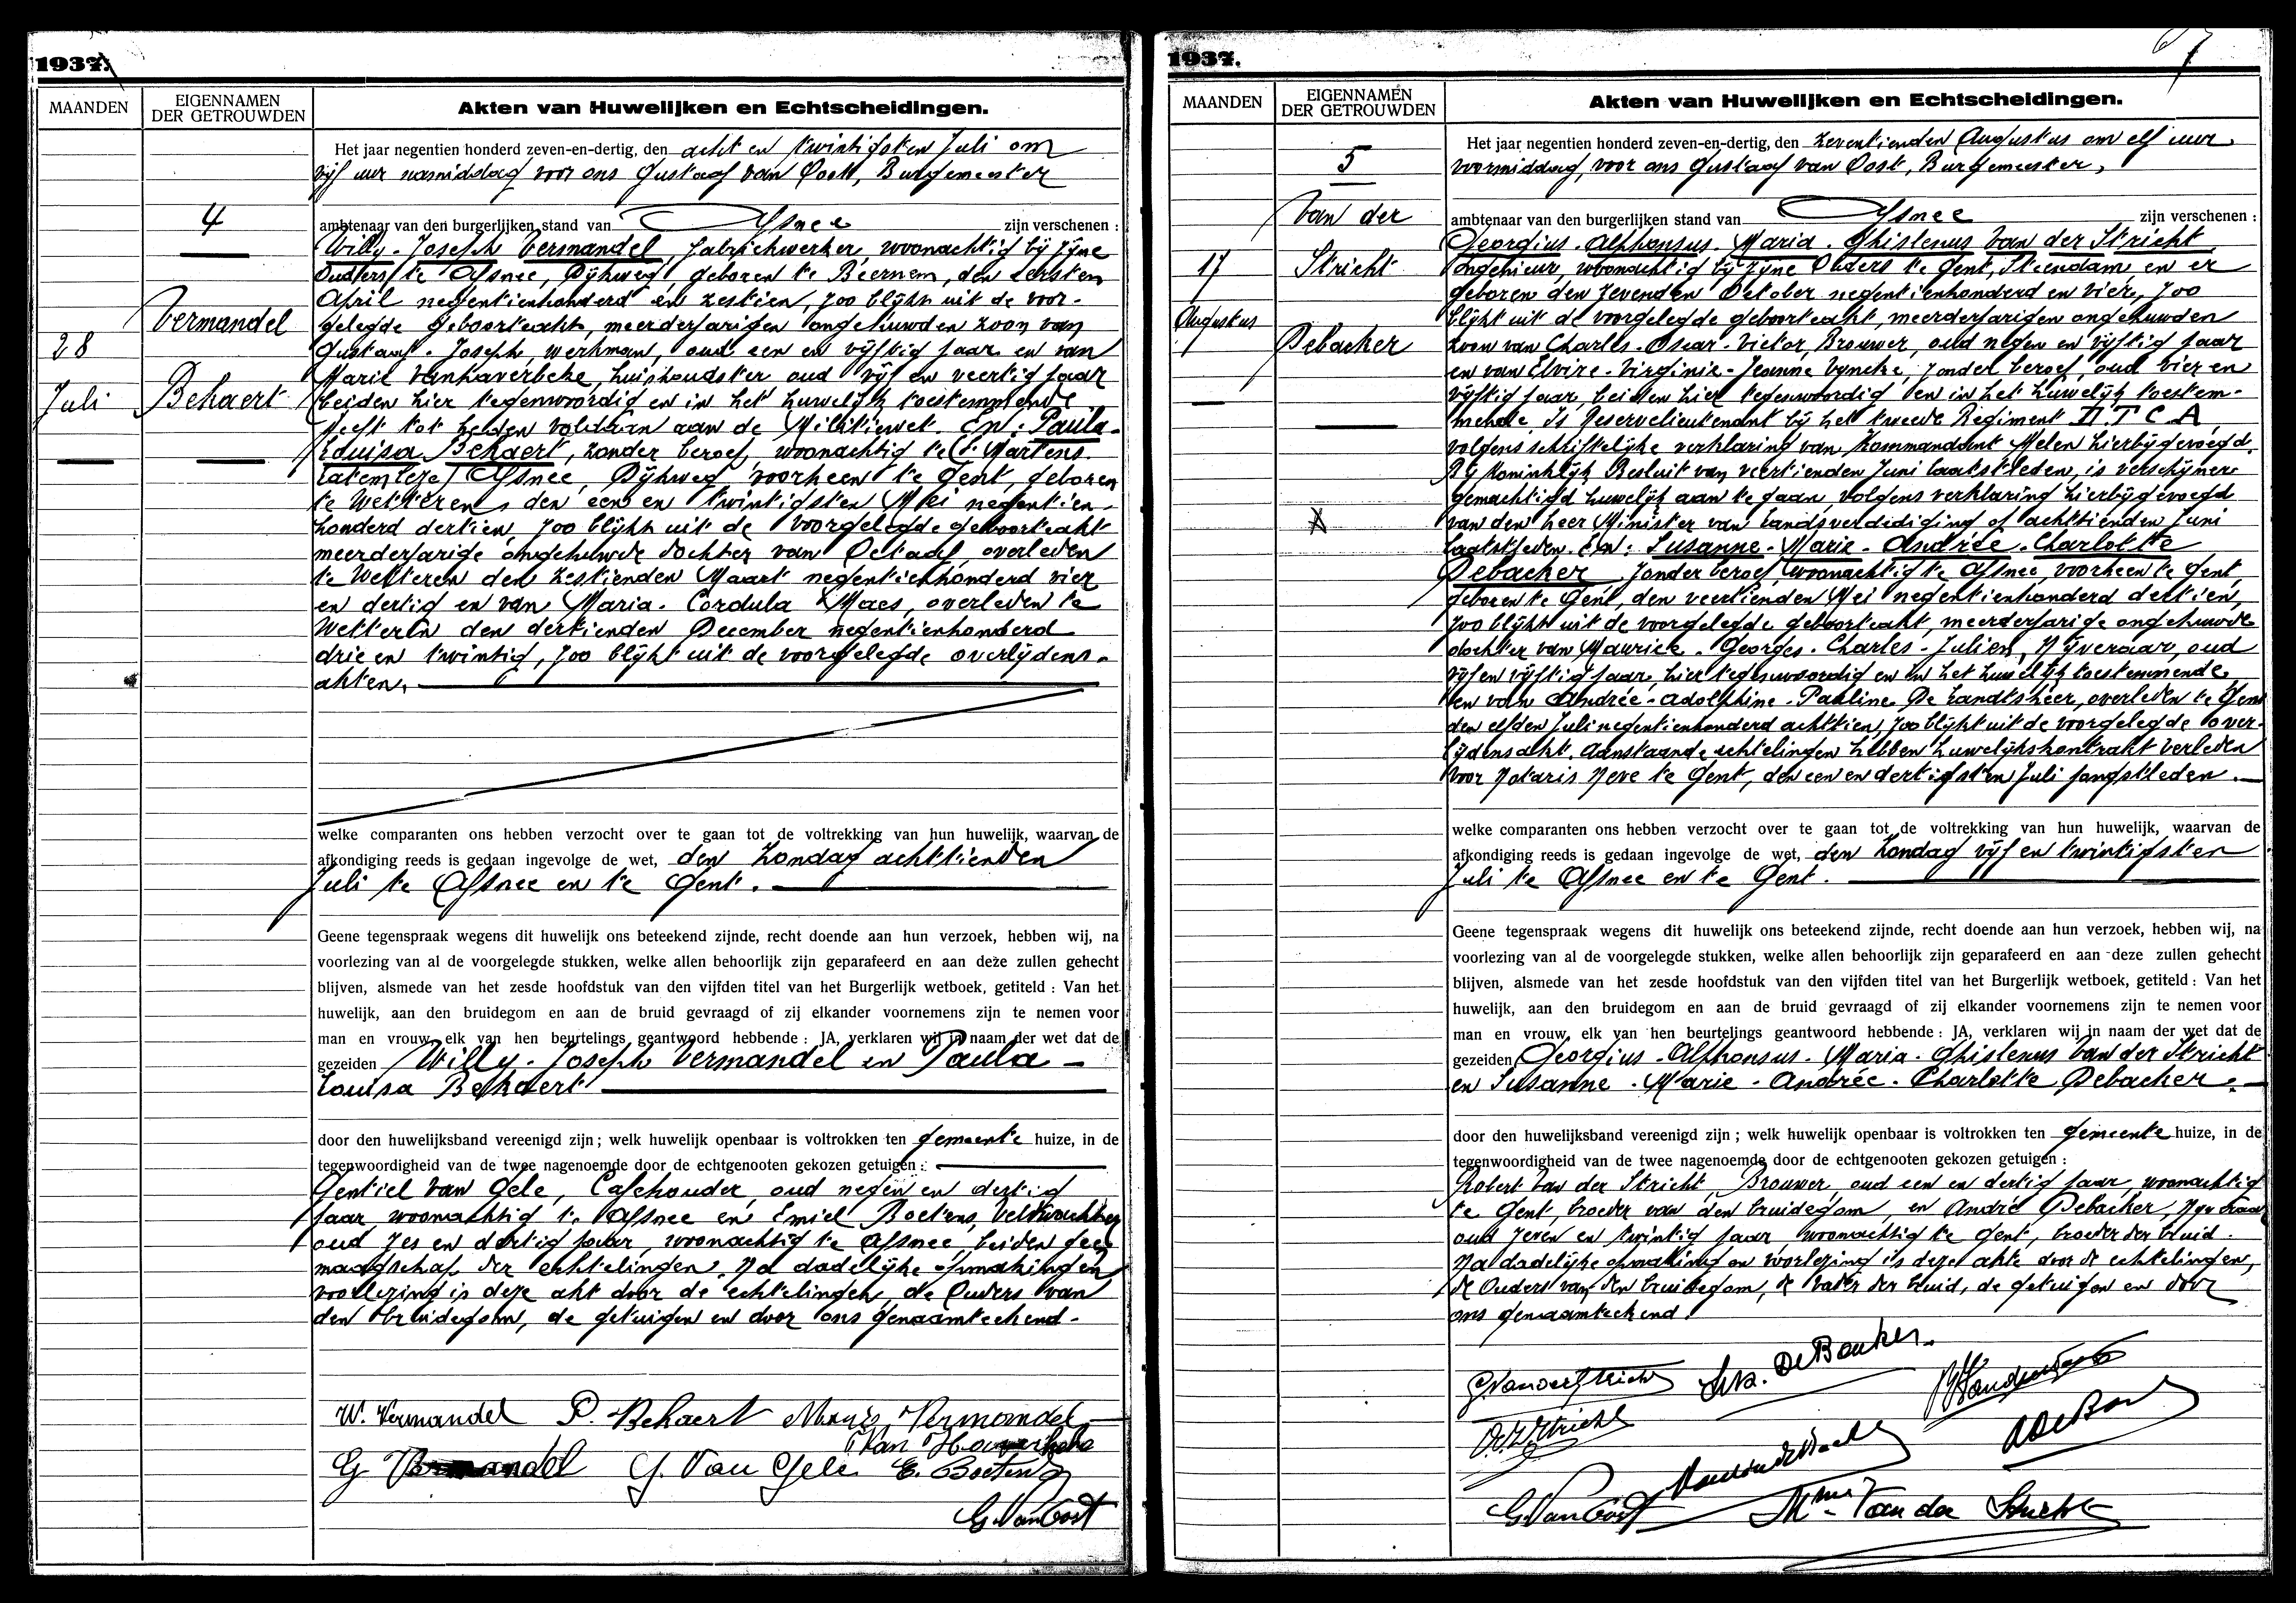 1937.
MAANDEN
EIGENNAMEN
DER GETROUWDEN
Akten van Huwelijken en Echtscheidingen.
4
Vermandel
28
Juli
Behaert
Het jaar negentien honderd zeven-en-dertig, den acht en twintigsten Juli om
vijf uur namiddag voor ons Gustaaf van Oost, Burgemeester
ambtenaar van den burgerlijken stand van Afsnee zijn verschenen :
Willy - Joseph Vermandel, fabriekwerker, woonachtig bij zijne
Ouders te Afsnee, Dijkweg, geboren te Beernem, den eersten
April negentienhonderd en zestien, zoo blijkt uit de voor-
gelegde geboorteakte, meerderjarigen ongehuwden zoon van
Gustaaf - Joseph, werkman, oud een en vijftig jaar en van
Marie Vanhaverbeke, huishoudster oud vijf en veertig jaar
beiden hier tegenwoordig en in het huwelijk toestemmende
Heeft tot heden voldaan aan de Militiewet. En: Paula -
Louisa Behaert, zonder beroep, woonachtig te St Martens
Latem (eze) Afsnee, Dijkweg, voorheen te Gent, geboren
te Wetteren, den een en twintigsten Mei negentien-
honderd dertien, zoo blijkt uit de voorgelegde geboorteakt
meerderjarige ongehuwde dochter van Octaaf, overleden
te Wetteren den zestienden Maart negentienhonderd vier
en dertig en van Maria - Cordula Maes, overleden te
Wetteren den dertienden December negentienhonderd
drie en twintig, zoo blijkt uit de voorgelegde overlijdens-
akten.
welke comparanten ons hebben verzocht over te gaan tot de voltrekking van hun huwelijk, waarvan de
afkondiging reeds is gedaan ingevolge de wet, den Zondag achttienden
Juli te Afsnee en te Gent.
Geene tegenspraak wegens dit huwelijk ons beteekend zijnde, recht doende aan hun verzoek, hebben wij, na
voorlezing van al de voorgelegde stukken, welke allen behoorlijk zijn geparafeerd en aan deze zullen gehecht
blijven, alsmede van het zesde hoofdstuk van den vijfden titel van het Burgerlijk wetboek, getiteld : Van het
huwelijk, aan den bruidegom en aan de bruid gevraagd of zij elkander voornemens zijn te nemen voor
man en vrouw, elk van hen beurtelings geantwoord hebbende : JA, verklaren wij in naam der wet dat de
gezeiden Willy - Joseph Vermandel en Paula -
Louisa Behaert
door den huwelijksband vereenigd zijn ; welk huwelijk openbaar is voltrokken ten gemeente huize, in de
tegenwoordigheid van de twee nagenoemde door de echtgenooten gekozen getuigen :
Gentiel van Gele, Cafehouder, oud negen en dertig
jaar, woonachtig te Afsnee en Emiel Boetens, Veldwachter
oud zes en dertig jaar, woonachtig te Afsnee, beiden geen
maagschap der echtelingen. Na dadelijke opmaking en
voorlezing is deze akt door de echtelingen, de Ouders van
den bruidegom, de getuigen en door ons genaamteekend.
W. Vermandel P. Behaert Vermandel
Van Haverbeke
G Vermandel G. Van Gele E. Boetens
G. Van Oost
1937.
67
MAANDEN
EIGENNAMEN
DER GETROUWDEN
Akten van Huwelijken en Echtscheidingen.
5
Van der
17
Stricht
Augustus
Debacker
Het jaar negentien honderd zeven-en-dertig, den zeventienden Augustus om elf uur
voormiddag, voor ons Gustaaf van Oost, Burgemeester,
ambtenaar van den burgerlijken stand van Afsnee zijn verschenen :
Georgius - Alphonsus - Maria - Ghislenus Van der Stricht,
ongenieur, woonachtig bij zijne Ouders te Gent, Steendam, en er
geboren den zevenden October negentienhonderd en vier, zoo
blijkt uit de voorgelegde geboorteakt, meerderjarigen ongehuwden
zoon van Charles - Oscar - Victor, Brouwer, oud negen en vijftig jaar
en van Elvire - Virginie - Jeanne Vyncke, zonder beroep, oud vier en
vijftig jaar, beiden hier tegenwoordig en in het huwelijk toestem-
mende. Is Reserveluitenant bij het tweede Regiment D.T.C.A
volgens schriftelijke verklaring van Kommandant Melen hierbijgevoegd.
Bij Koninklijk Besluit van veertienden Juni laatstleden, is verschijner
gemachtigd huwelijk aan te gaan, volgens verklaring hierbijgevoegd
van den heer Minister van Landsverdediging of achttienden Juni
laatstleden. En: Susanne - Marie - Andrée - Charlotte
Debacker, zonder beroep, woonachtig te Afsnee, voorheen te Gent,
geboren te Gent, den veertienden Mei negentienhonderd dertien,
zoo blijkt uit de voorgelegde geboorteakt, meerderjarige ongehuwde
dochter van Maurice - Georges - Charles - Julien, Nijveraar, oud
vijf en vijftig jaar, hier tegenwoordig en in het huwelijk toestemmende,
en van Andrée - Adolphine - Pauline De Landtsheer, overleden te Gent
den elfden Juli negentienhonderd achttien, zoo blijkt uit de voorgelegde over-
lijdensakt. Aanstaande echtelingen hebben huwelijkskontrakt verleden
voor Notaris Neve te Gent, den een en dertigsten Juli jongstleden.
welke comparanten ons hebben verzocht over te gaan tot de voltrekking van hun huwelijk, waarvan de
afkondiging reeds is gedaan ingevolge de wet, den Zondag vijf en twintigsten
Juli te Afsnee en te Gent.
Geene tegenspraak wegens dit huwelijk ons beteekend zijnde, recht doende aan hun verzoek, hebben wij, na
voorlezing van al de voorgelegde stukken, welke allen behoorlijk zijn geparafeerd en aan deze zullen gehecht
blijven, alsmede van het zesde hoofdstuk van den vijfden titel van het Burgerlijk wetboek, getiteld : Van het
huwelijk, aan den bruidegom en aan de bruid gevraagd of zij elkander voornemens zijn te nemen voor
man en vrouw, elk van hen beurtelings geantwoord hebbende : JA, verklaren wij in naam der wet dat de
gezeiden Georgius - Alphonsus - Maria - Ghislenus Van der Stricht
en Susanne - Marie - Andrée - Charlotte Debacker.
door den huwelijksband vereenigd zijn ; welk huwelijk openbaar is voltrokken ten gemeente huize, in de
tegenwoordigheid van de twee nagenoemde door de echtgenooten gekozen getuigen :
Robert Van der Stricht, Brouwer, oud een en dertig jaar, woonachtig
te Gent, broeder van den bruidegom, en André Debacker, Nijveraar
oud zeven en twintig jaar woonachtig te Gent, broeder der bruid.
Na dadelijke opmaking en voorlezing is deze akte door de echtelingen,
de Ouders van den bruidegom, de vader der bruid, de getuigen en door
ons genaamteekend.
G. Vanderstricht Suz. De Backer
G. Van Oost Mme Van der Stricht